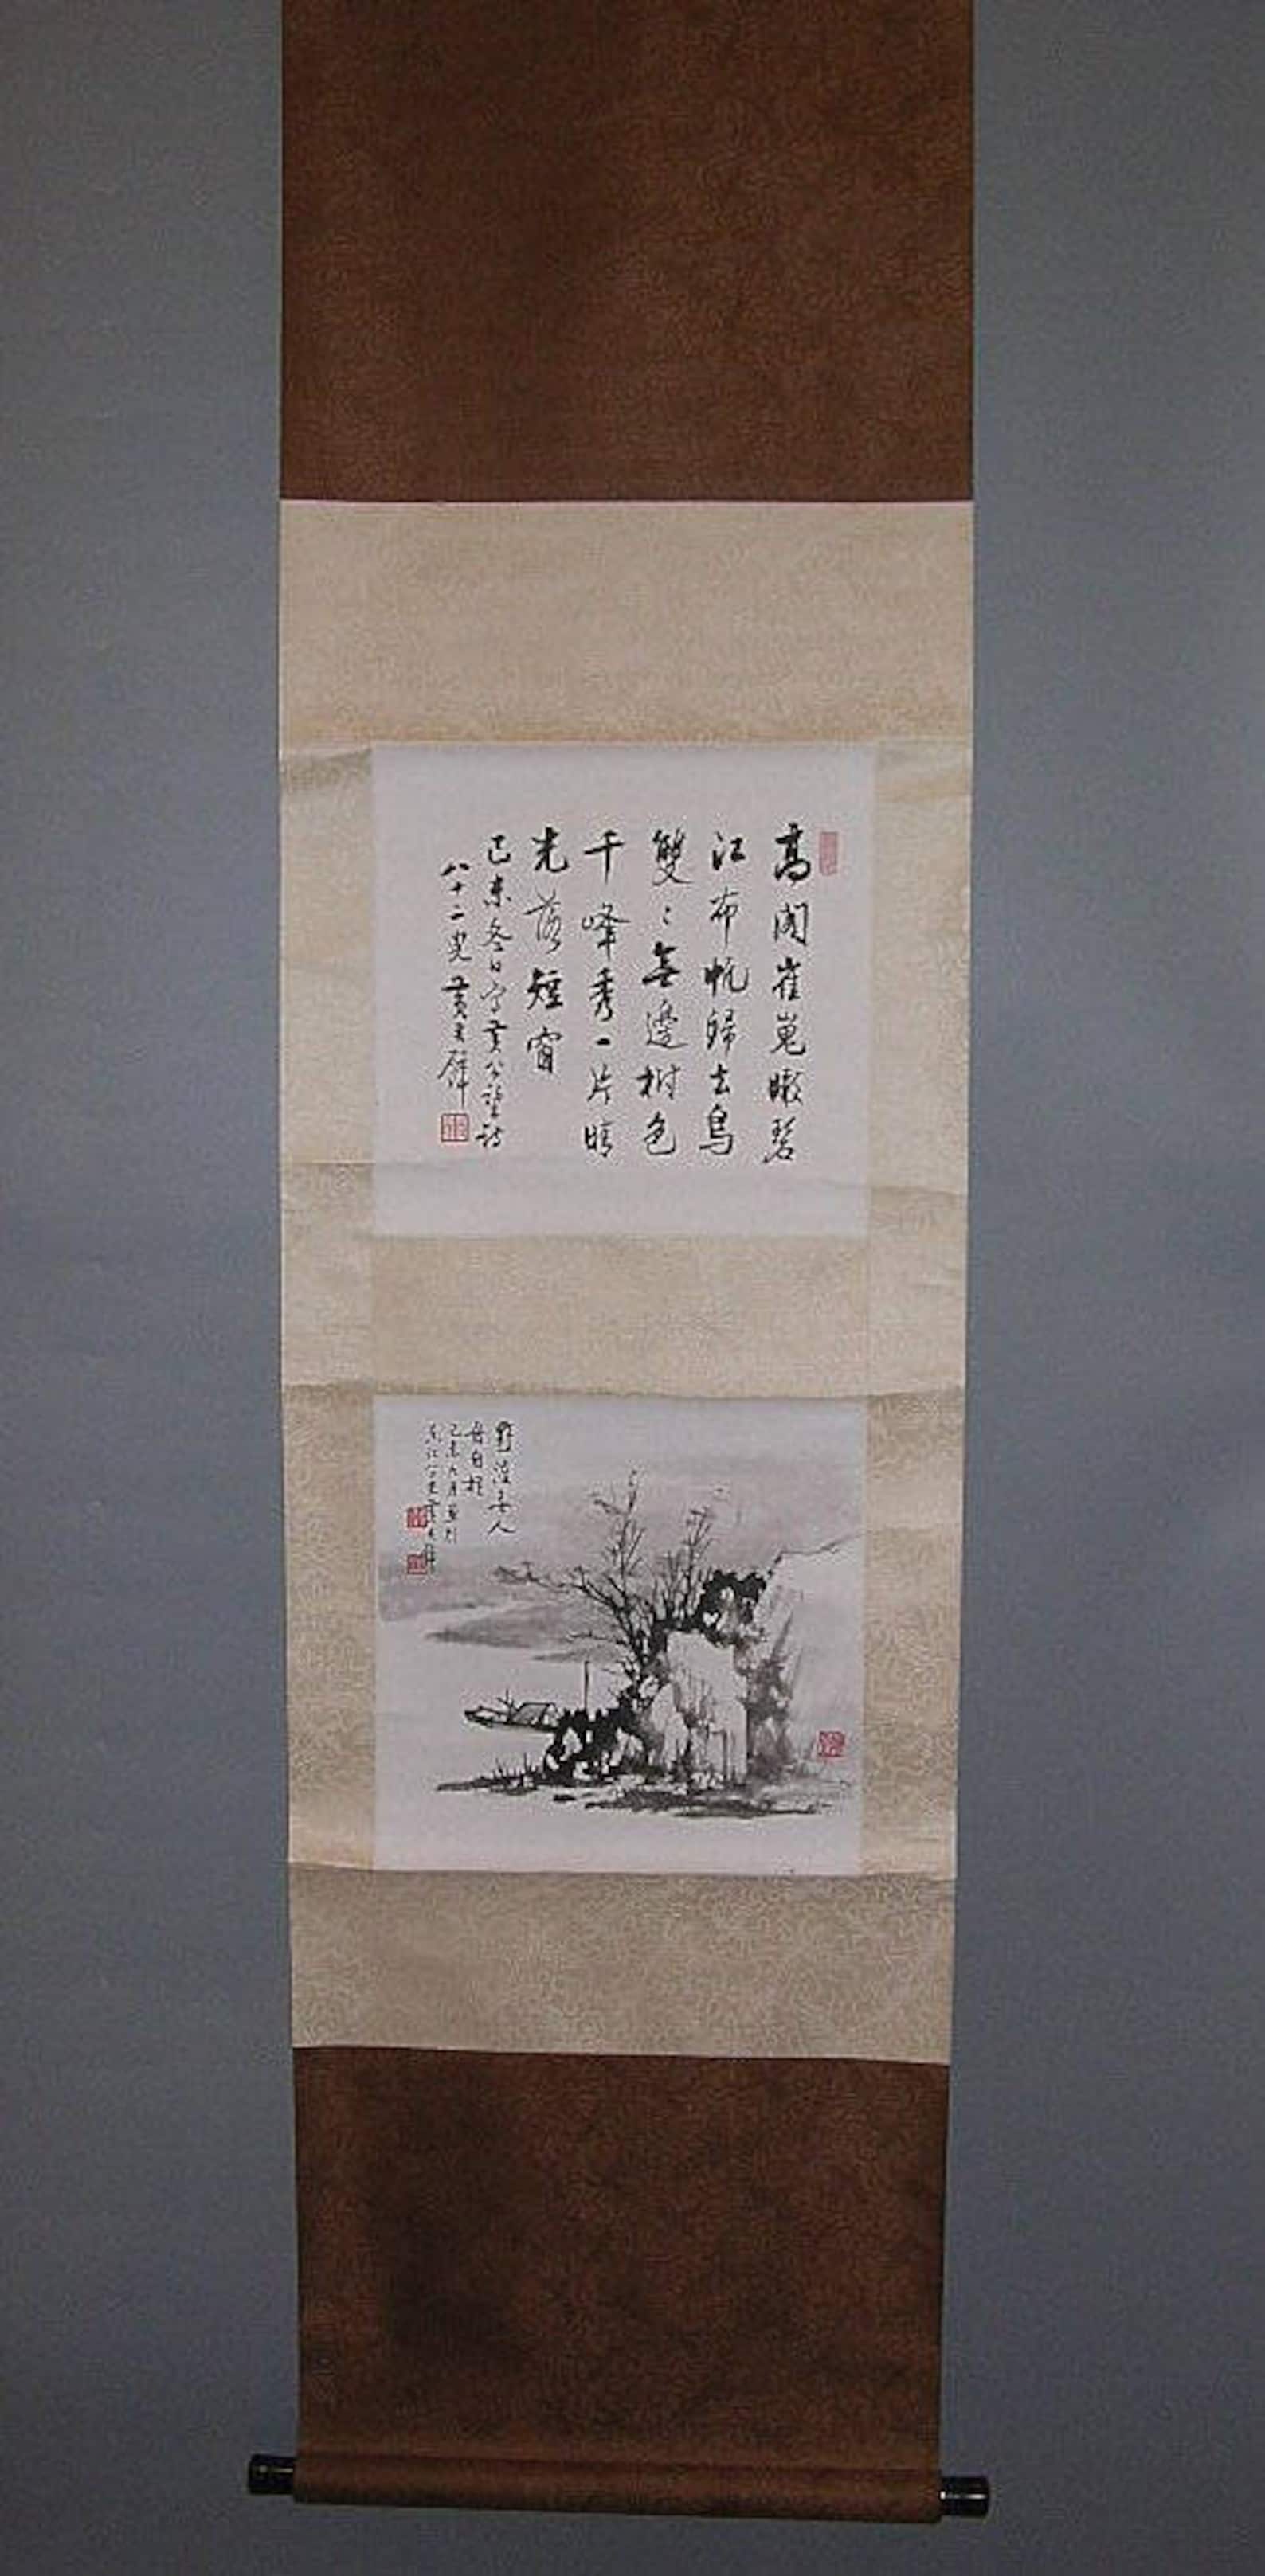 高閣崔嵬瞰碧
江布帆歸去鳥
雙〻無邊樹色
千峰秀一片晴
光落短窗
己未冬日寫黃公望詩
八十二叟黃君璧
野渡無人
舟自橫
己未
黃君璧